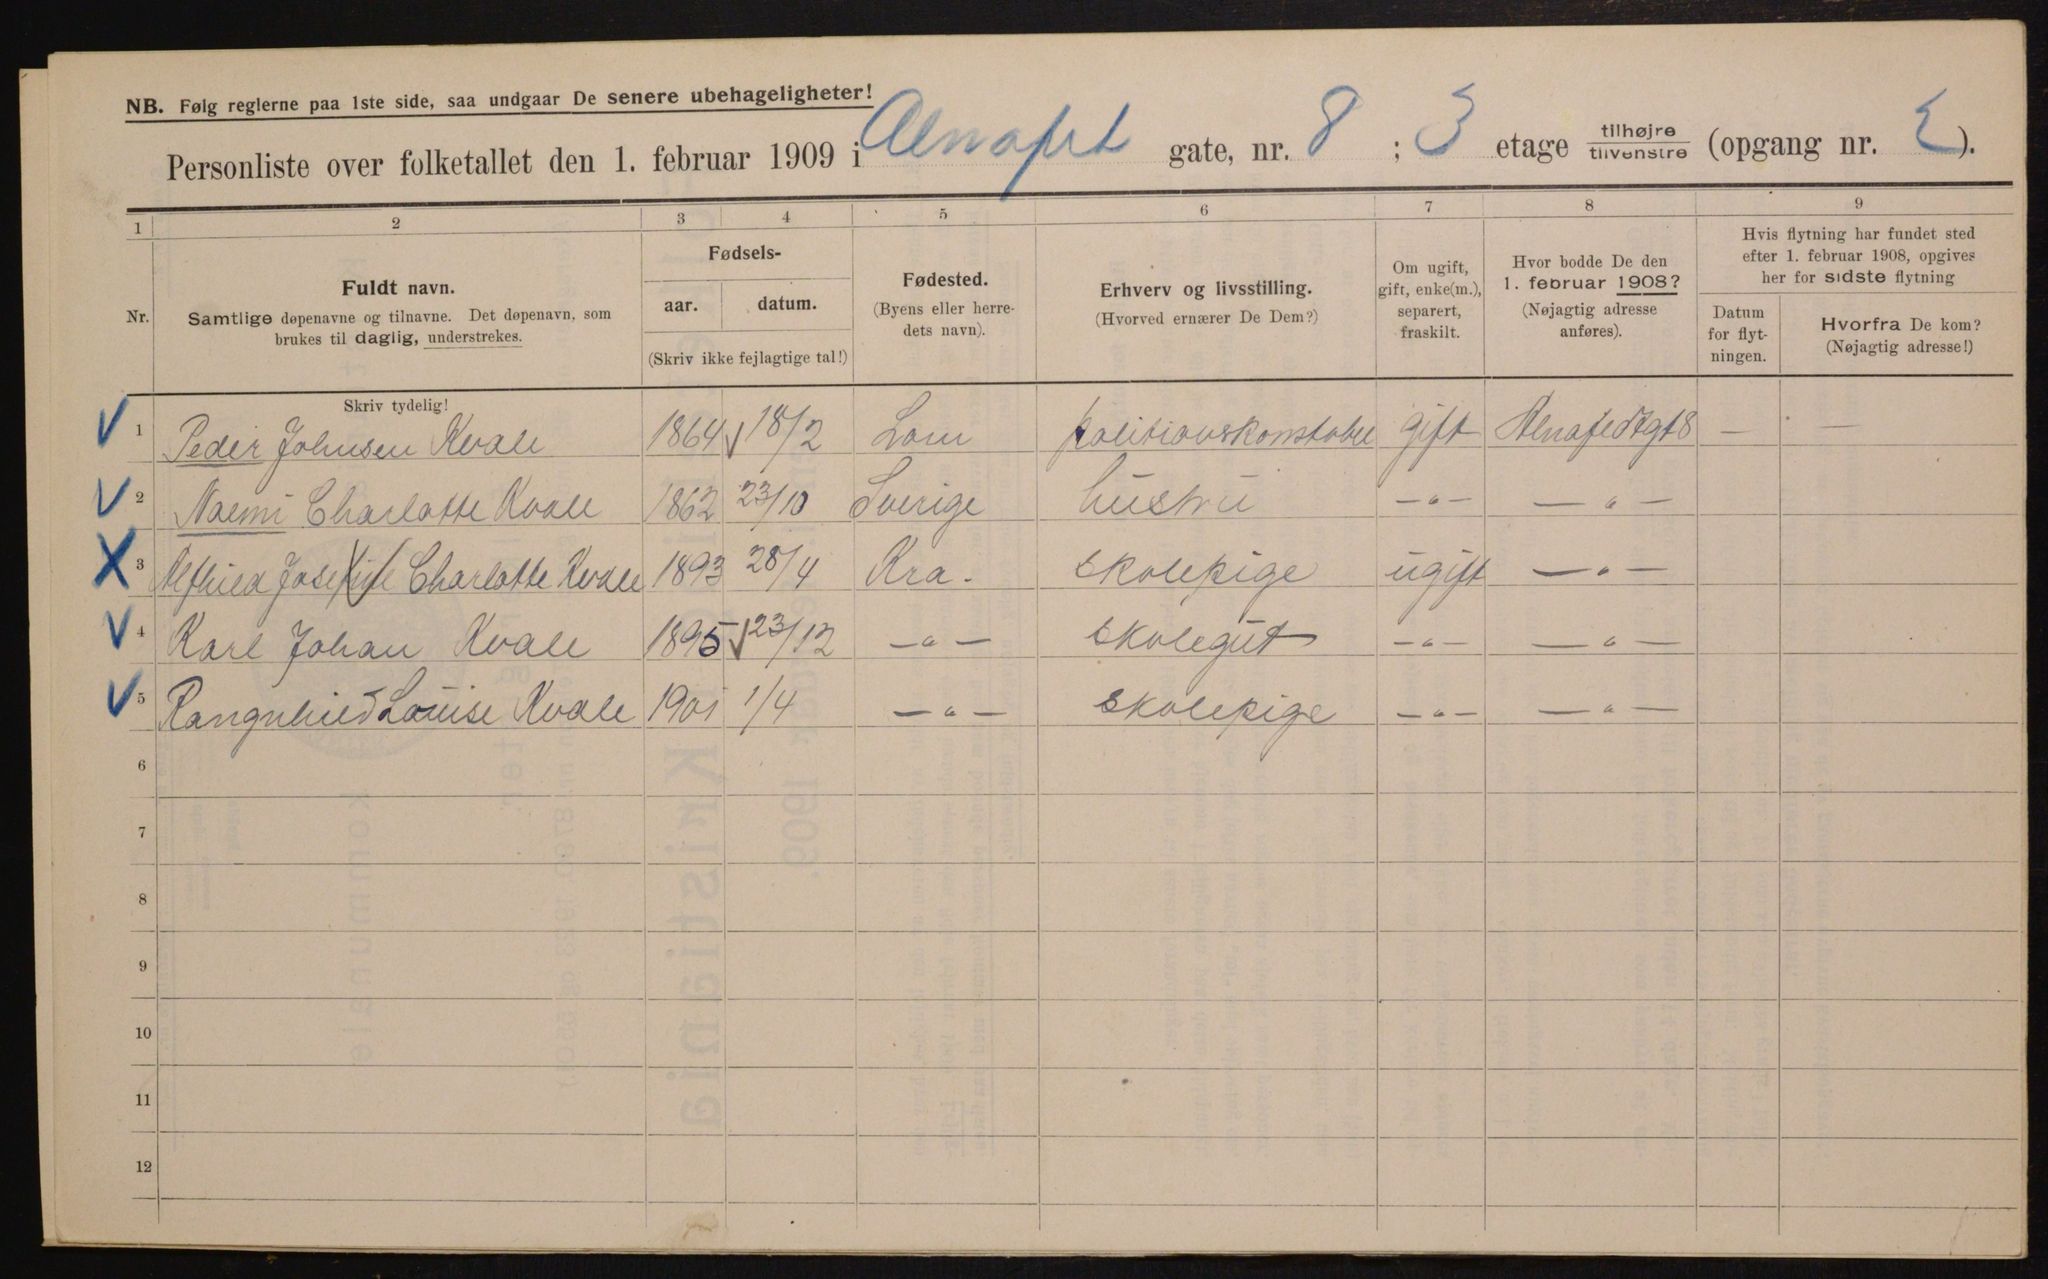 NB. Følg reglerne paa 1ste side, saa undgaar De senere ubehageligheter!
Personliste over folketallet den 1. februar 1909 i Alnafet gate, nr. 8 ; 3 etage tilhøjre / tilvenstre (opgang nr. E ).
1 2 3 4 5 6 7 8 9
Nr.
Fuldt navn.
Samtlige døpenavne og tilnavne. Det døpenavn, som
brukes til daglig, understrekes.
Fødsels-
aar. datum.
(Skriv ikke fejlagtige tal!)
Fødested.
(Byens eller herre-
dets navn).
Erhverv og livsstilling.
(Hvorved ernærer De Dem?)
Om ugift,
gift, enke(m.),
separert,
fraskilt.
Hvor bodde De den
1. februar 1908?
(Nøjagtig adresse
anføres).
Hvis flytning har fundet sted
efter 1. februar 1908, opgives
her for sidste flytning
Datum
for flyt-
ningen.
Hvorfra De kom?
(Nøjagtig adresse!)
Skriv tydelig!
1 Peder Johnsen Kvale 1864 18/2 Lom politiovskonstabel gift Alnafedtgt 8 — —
2 Naemi Charlotte Kvale 1862 23/10 Sverige hustru —"— —"—
3 Alfhied Josefine Charlotte Kvale 1893 28/4 Kra. skolepige ugift —"—
4 Karl Johan Kvale 1895 23/12 —"— skolegut —"— —"—
5 Rangnhied Louise Kvale 1901 1/4 —"— skolepige —"— —"—
6
7
8
9
10
11
12